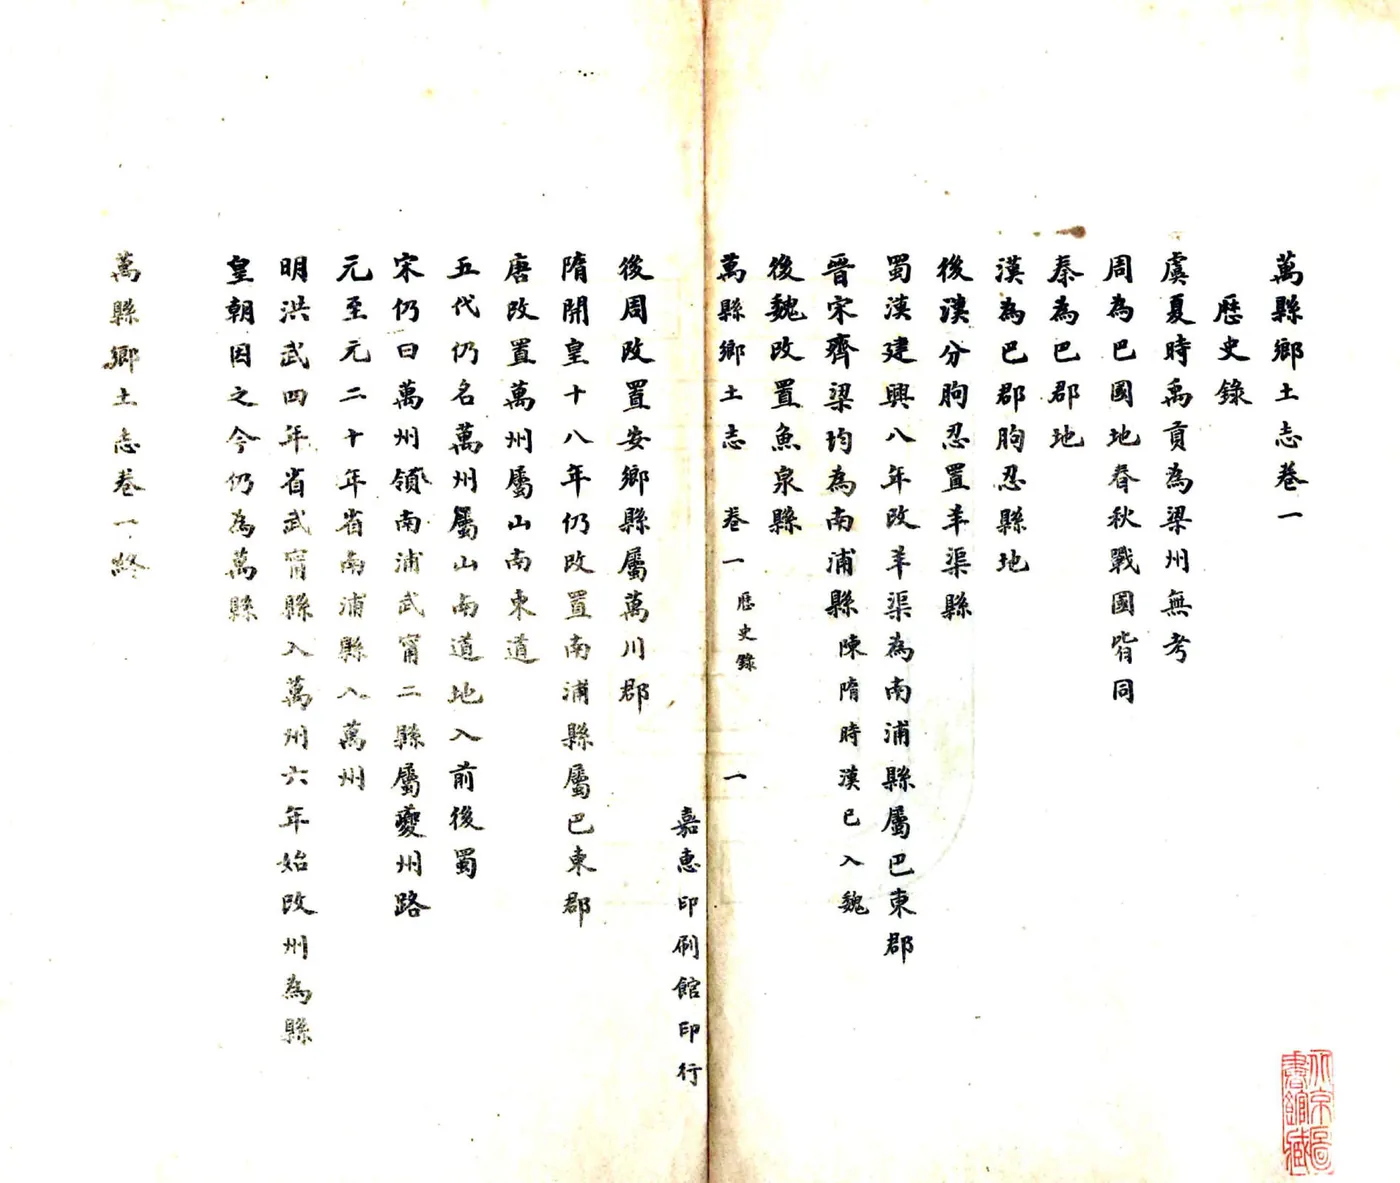 萬縣鄉土志卷一
歷史錄
虞夏時禹貢為梁州無考
周為巴國地春秋戰國皆同
秦為巴郡地
漢為巴郡朐忍縣地
後漢分朐忍置羊渠縣
蜀漢建興八年改羊渠為南浦縣屬巴東郡
晉宋齊梁均為南浦縣陳隋時漢已入魏
後魏改置魚泉縣
萬縣鄉土志 卷一 歷史錄 一
嘉惠印刷館印行
後周改置安鄉縣屬萬川郡
隋開皇十八年仍改置南浦縣屬巴東郡
唐改置萬州屬山南東道
五代仍名萬州屬山南道地入前後蜀
宋仍曰萬州領南浦武甯二縣屬夔州路
元至元二十年省南浦縣入萬州
明洪武四年省武甯縣入萬州六年始改州為縣
皇朝因之今仍為萬縣
萬縣鄉土志卷一終
北京圖書館藏